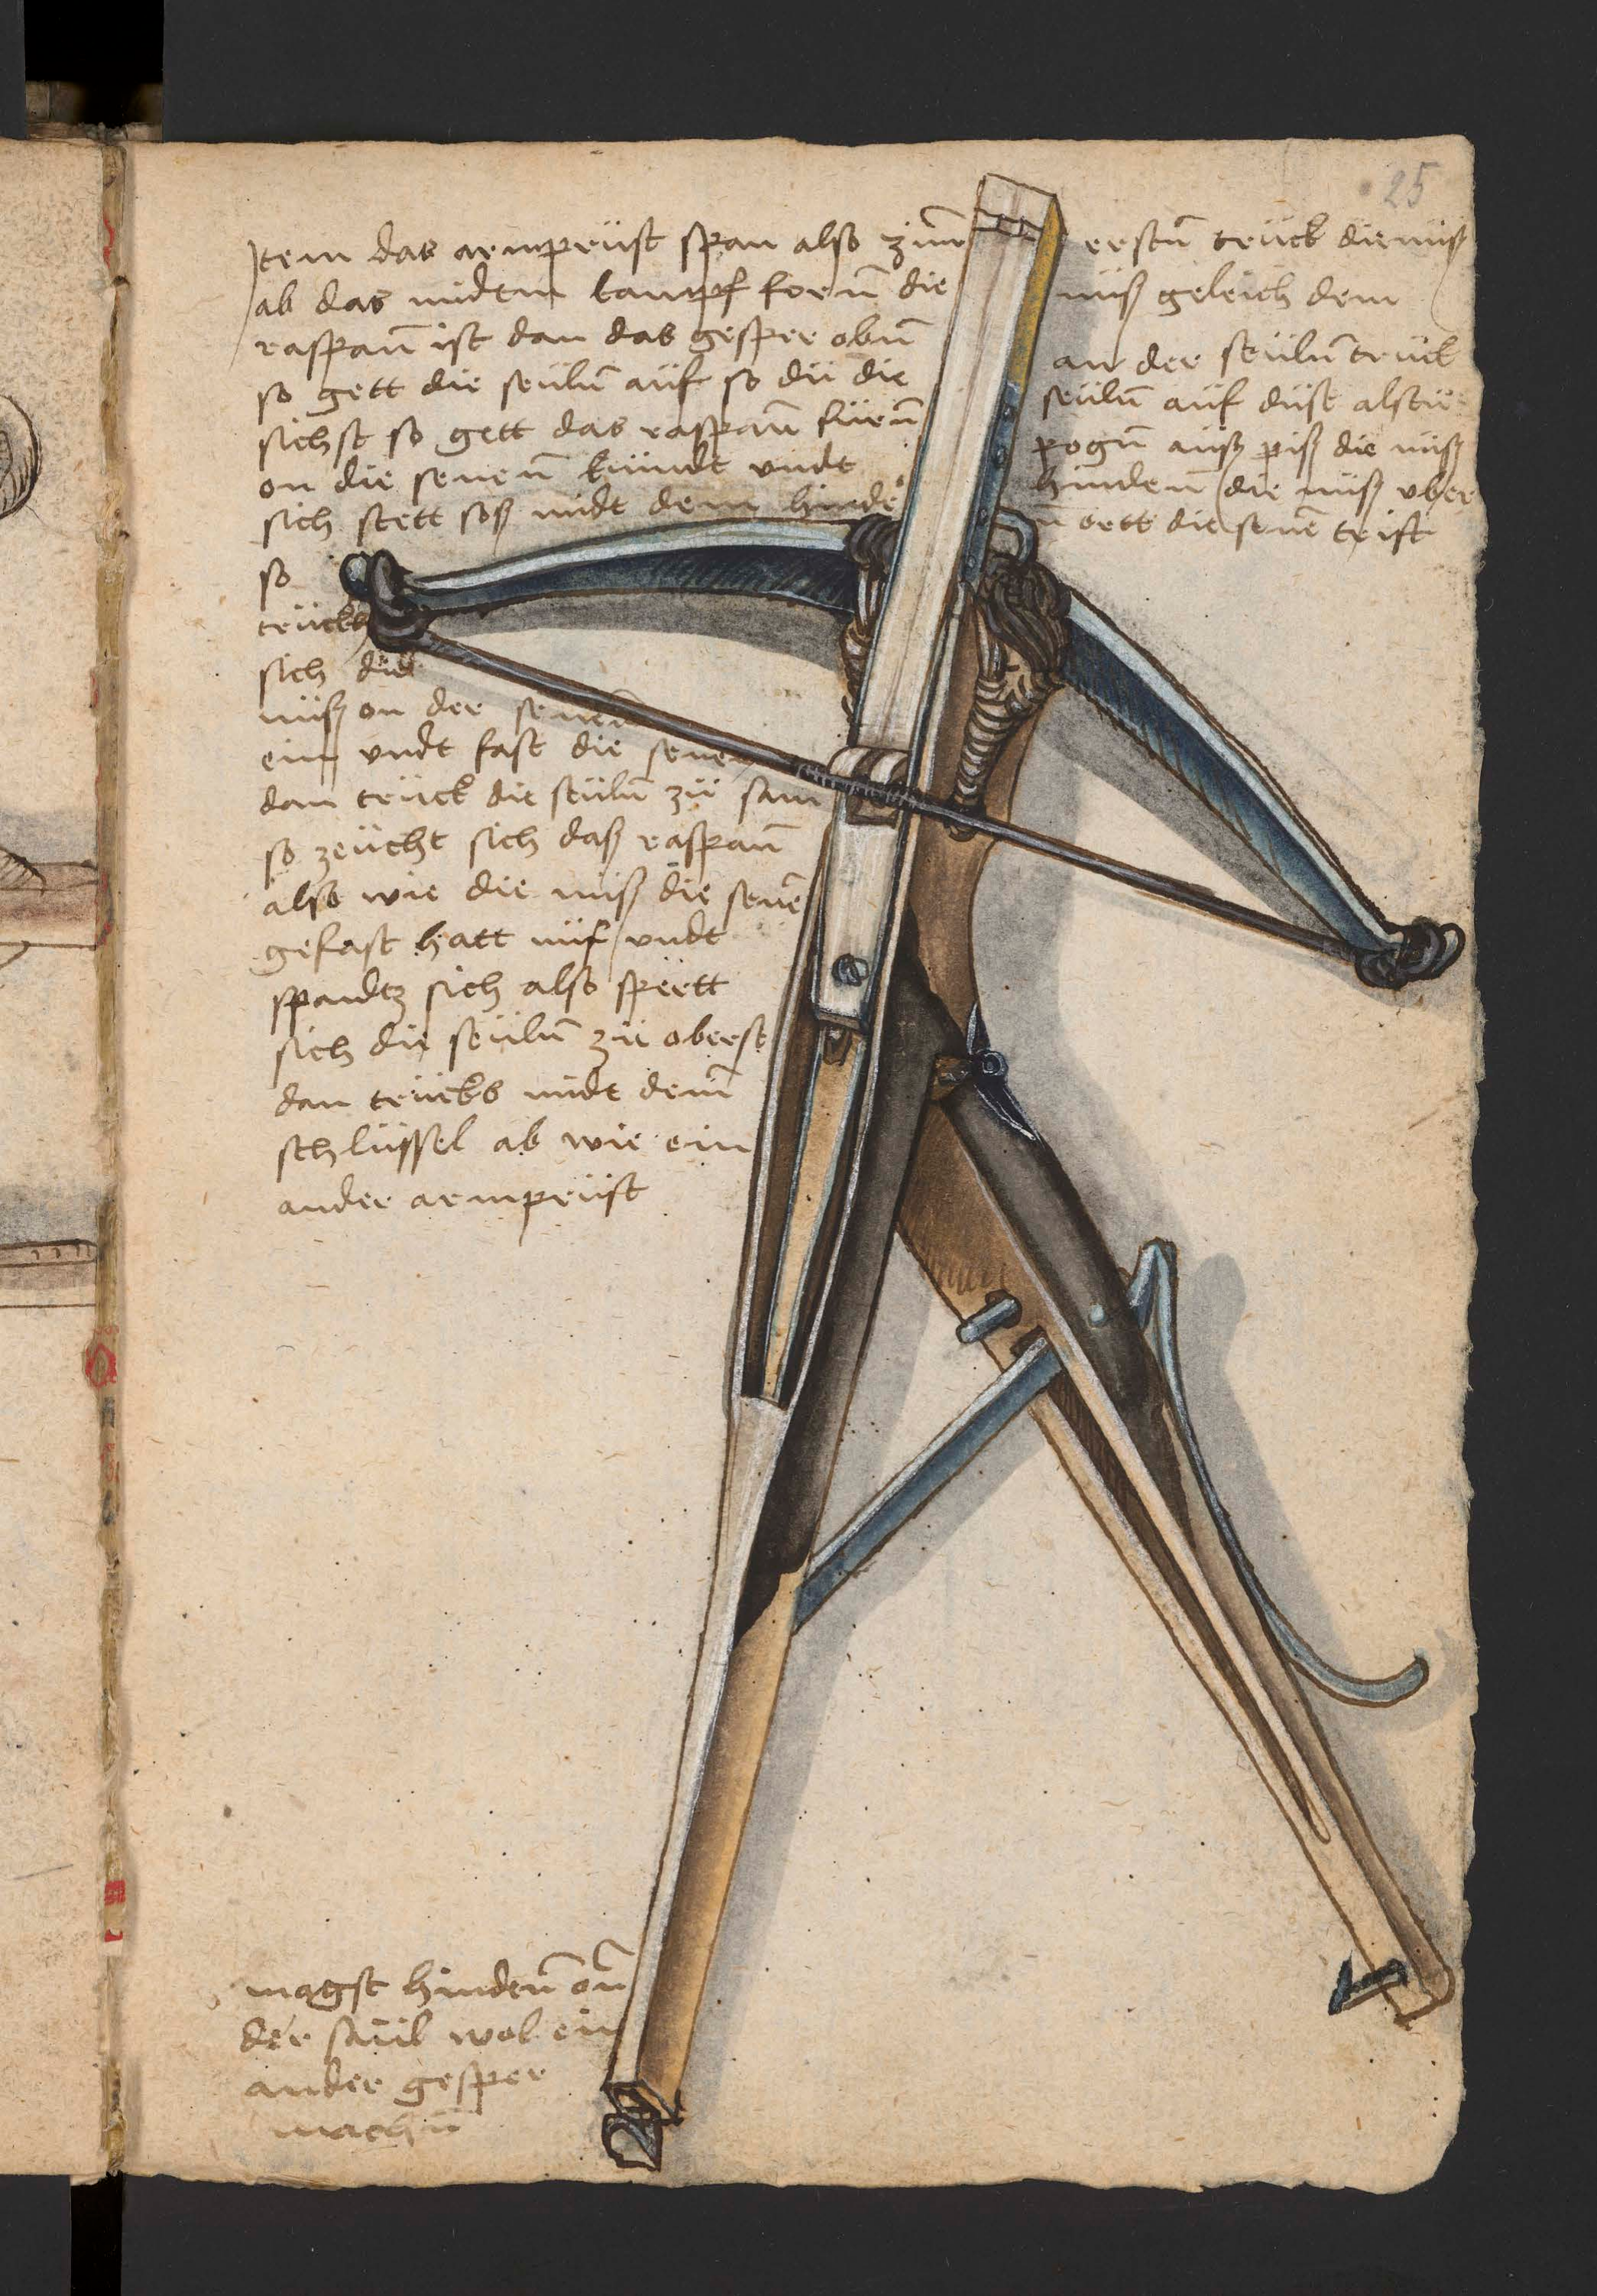 25
Item das armprüst span also zům erstn̄ trück die nüß
ab das midtem kampf forn̄ die nüß geleich dem
raspan̄ ist dan das gesper obn̄ an der seüln̄ trück
so gett die seüln̄ auf so dü die seüln̄ auf düst alstü
sichst so gett das raspan̄ fürn̄ pogn̄ auß piß die nüß
on die senen̄ kündt vndt hinden̄ die nüß vber
sich stett soß midt dem hinder
n̄ ortt die senē trift
so
trückh
sich die
nüß on der senen̄
ein vndt fast die senen
dan trück die seüln̄ zü sam
so zeücht sich daß raspan̄
also wie die nüß die senē
gefast hatt nüf vndt
spandtz sich also spertt
sich die seüln̄ zü oberst
dan trücks midt dem̄
schlüssel ab wie ein
ander armprüst
magst hinden̄ on̄
der saül wol ein
ander gesper
machn̄